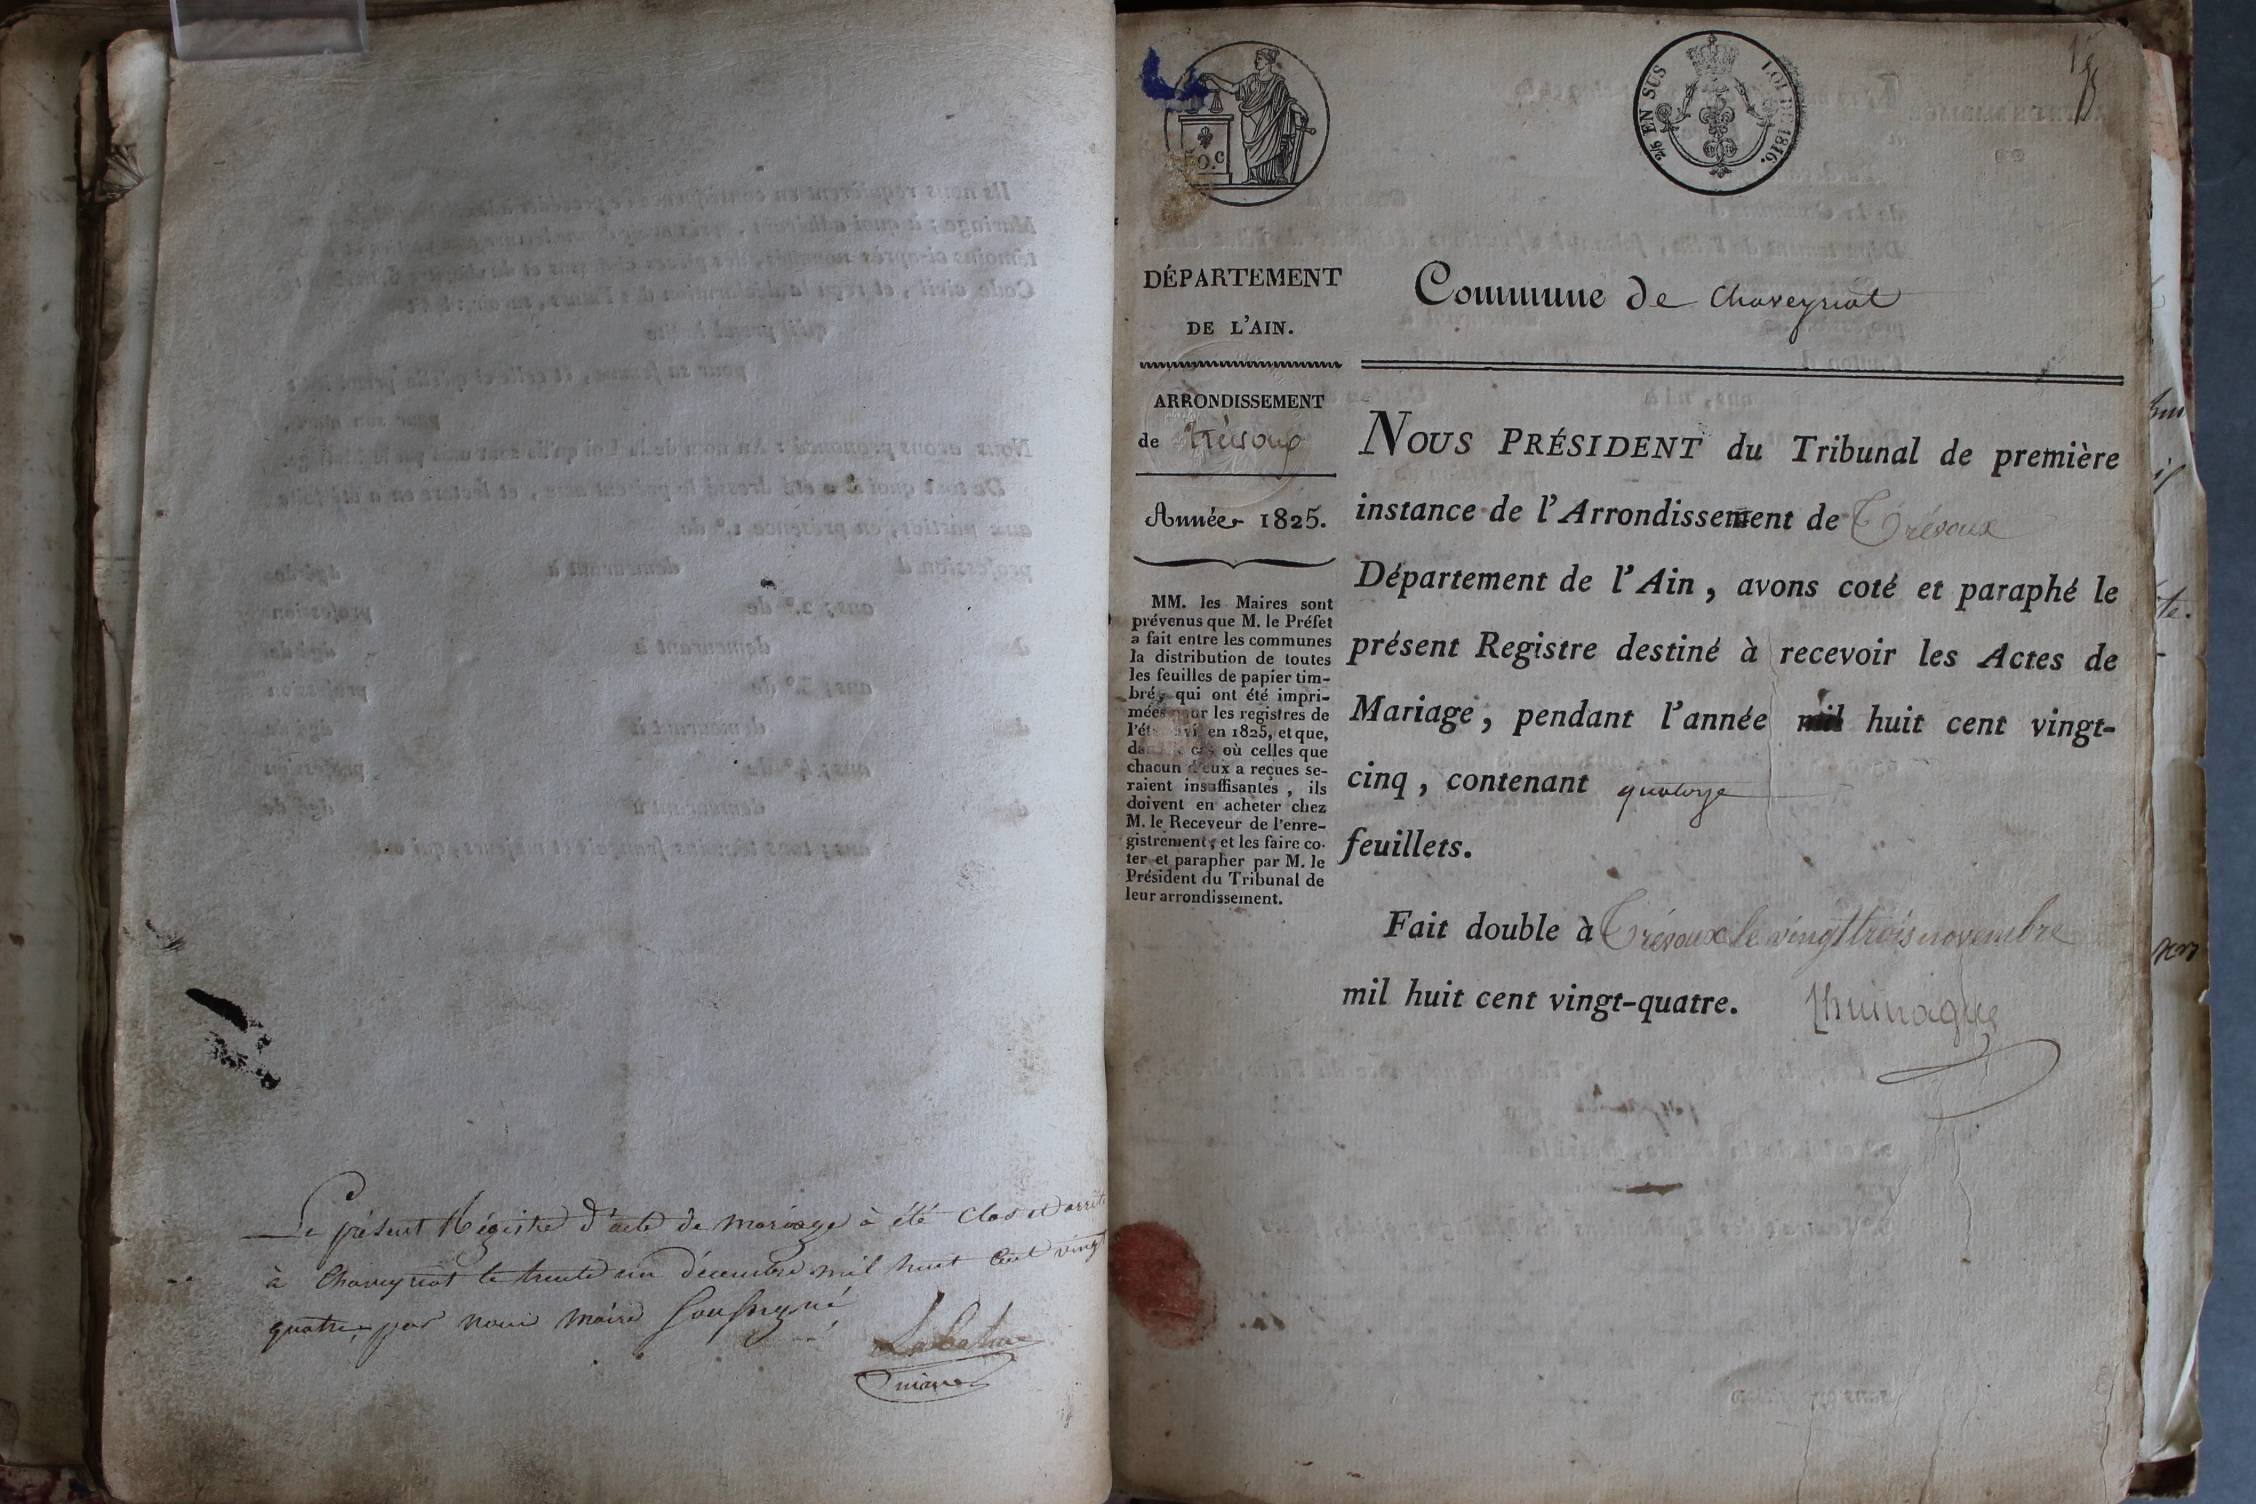 Le présent Régistre d'acte de mariage à été clos et arrêté
à Chaveyriat le trente un décembre mil huit cent vingt
quatre, par nous maire soussigné
maire
50.c
2/5 EN SUS LOI DE 1816.
DÉPARTEMENT
DE L'AIN.
ARRONDISSEMENT
de Trévoux
Année 1825.
MM. les Maires sont
prévenus que M. le Préfet
a fait entre les communes
la distribution de toutes
les feuilles de papier tim-
bré, qui ont été impri-
mées pour les registres de
l'état civil en 1825, et que,
dans le cas où celles que
chacun d'eux a reçues se-
raient insuffisantes, ils
doivent en acheter chez
M. le Receveur de l'enre-
gistrement, et les faire co-
ter et parapher par M. le
Président du Tribunal de
leur arrondissement.
Commune de Chaveyriat
NOUS PRÉSIDENT du Tribunal de première
instance de l'Arrondissement de Trévoux
Département de l'Ain, avons coté et paraphé le
présent Registre destiné à recevoir les Actes de
Mariage, pendant l'année mil huit cent vingt-
cinq, contenant quatorze
feuillets.
Fait double à Trévoux le vingt trois novembre
mil huit cent vingt-quatre.